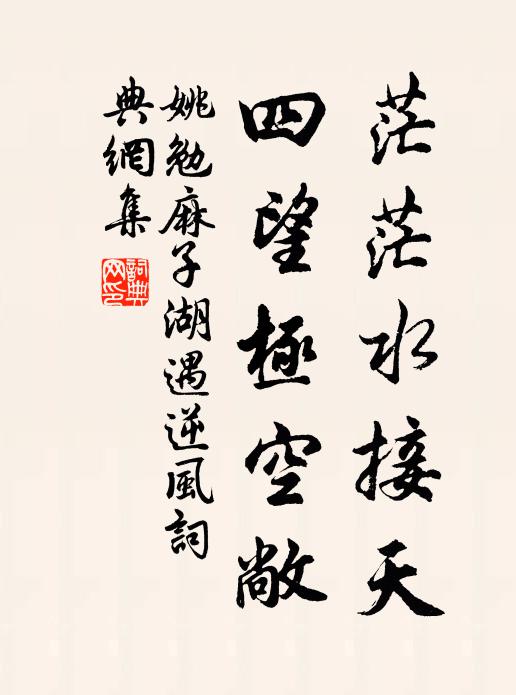 茫茫水接天
四望極空敞
姚勉麻子湖遇逆風詞
典網集
詞典網印